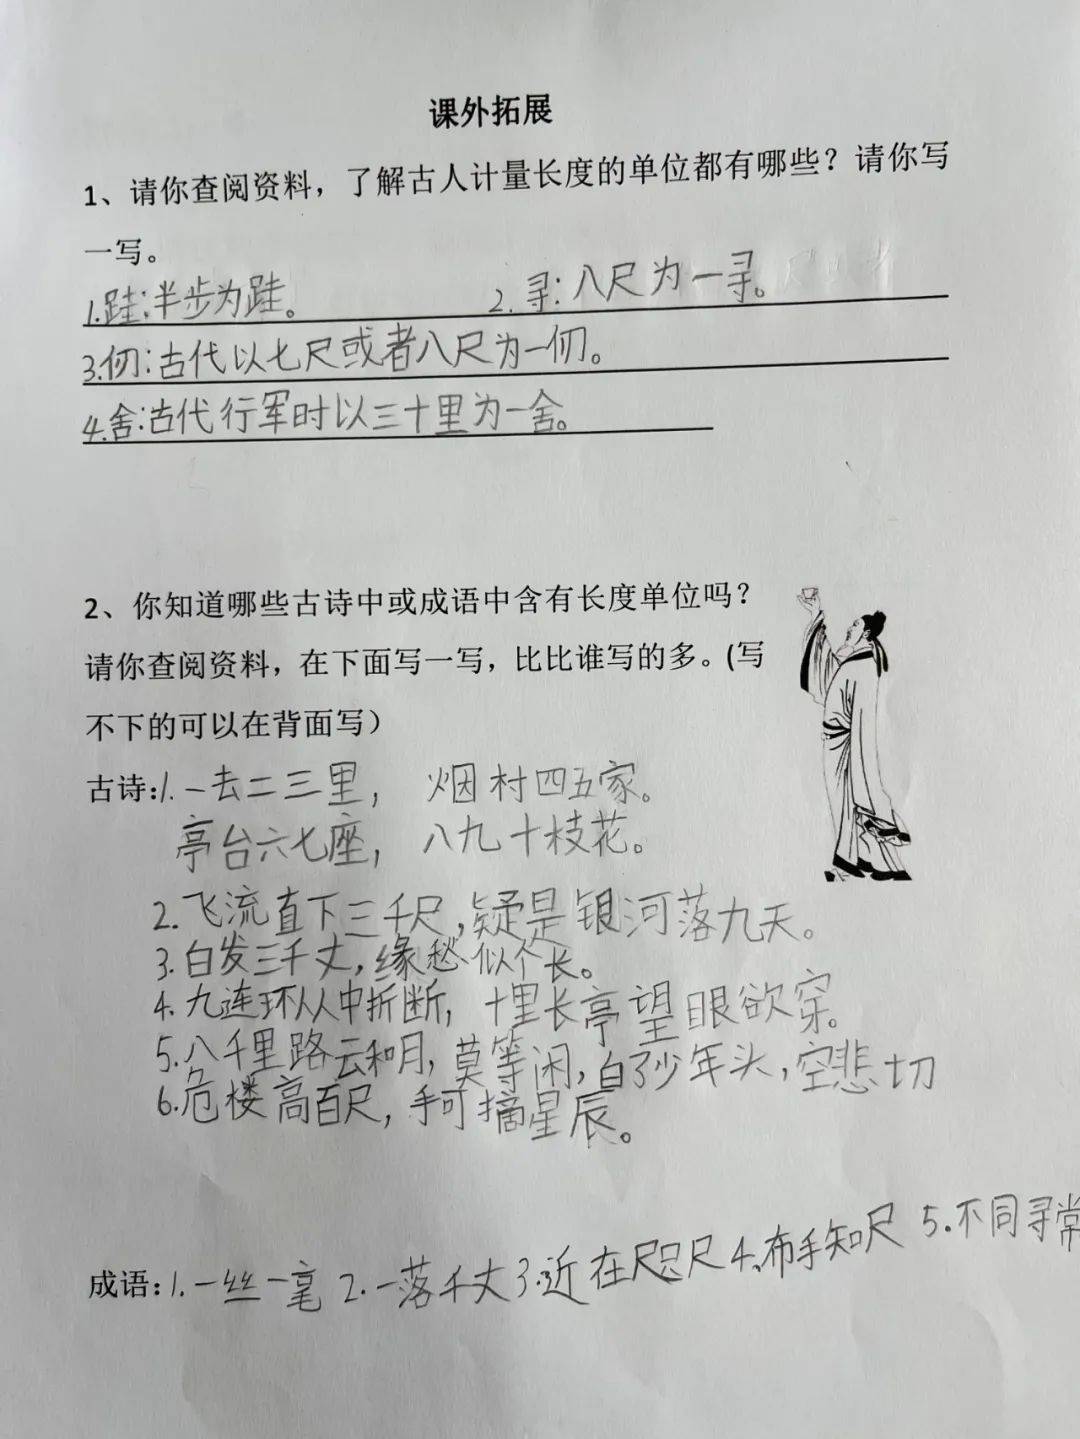 课外拓展
1、请你查阅资料，了解古人计量长度的单位都有哪些？请你写
一写。
1.跬:半步为跬。 2.寻:八尺为一寻。
3.仞:古代以七尺或者八尺为一仞。
4.舍:古代行军时以三十里为一舍。
2、你知道哪些古诗中或成语中含有长度单位吗？
请你查阅资料，在下面写一写，比比谁写的多。(写
不下的可以在背面写）
古诗:1.一去二三里, 烟村四五家。
亭台六七座, 八九十枝花。
2.飞流直下三千尺,疑是银河落九天。
3.白发三千丈,缘愁似个长。
4.九连环从中折断, 十里长亭望眼欲穿。
5.八千里路云和月,莫等闲,白了少年头,空悲切
6.危楼高百尺,手可摘星辰。
成语:1.一丝一毫 2.一落千丈 3.近在咫尺 4.布手知尺 5.不同寻常